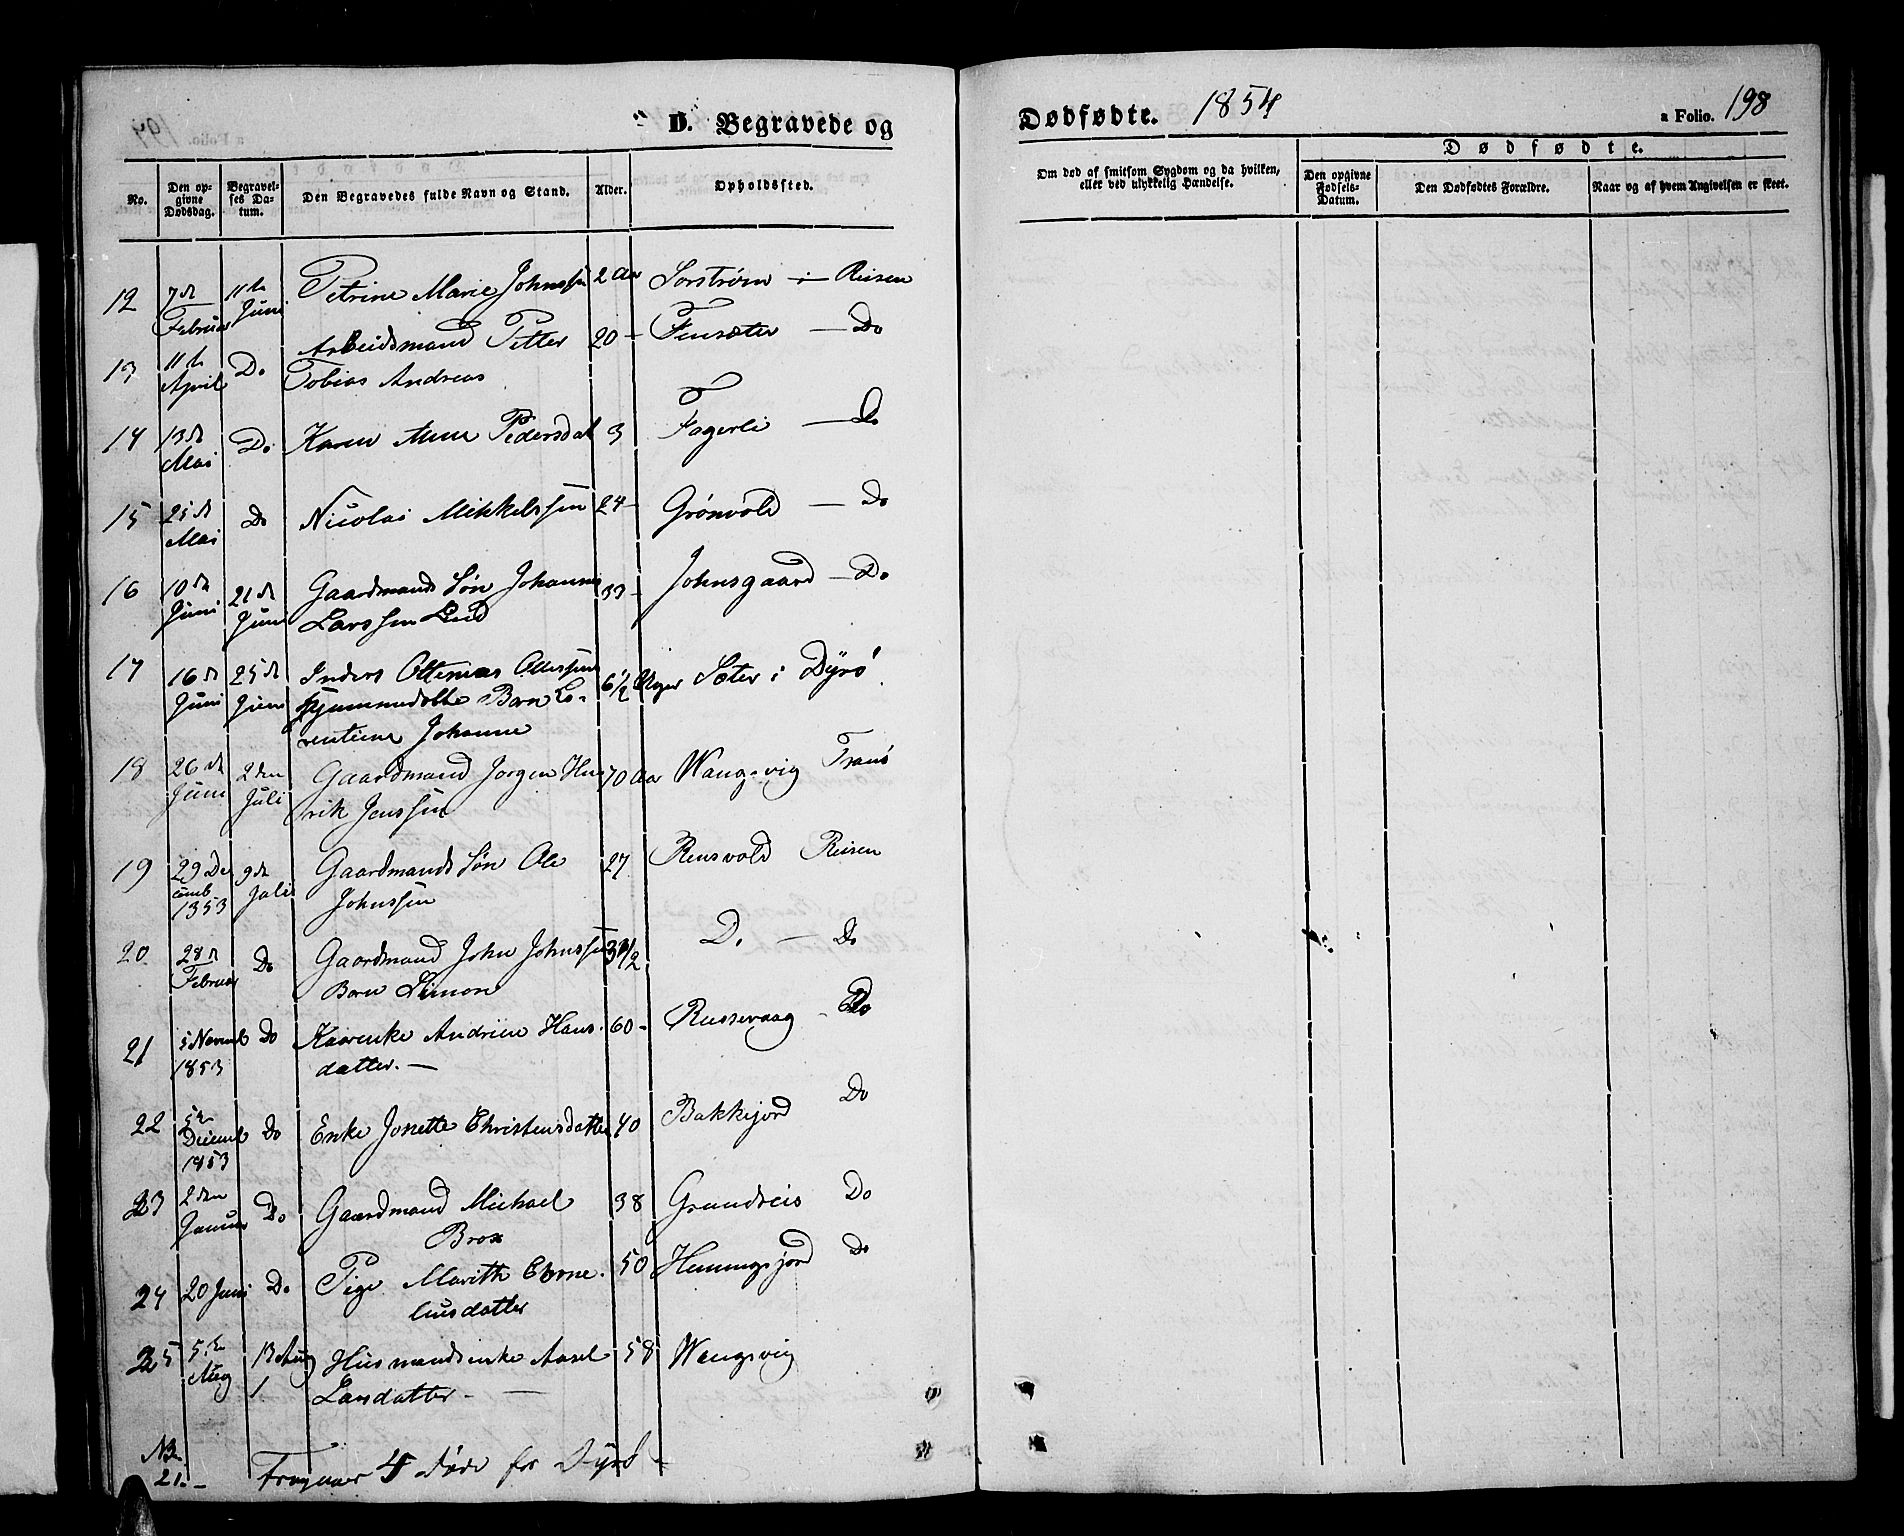 D. Begravede og
Dødfødte. 1854
a Folio. 198
No.
Den opgivne Dødsdag.
Begravelses Datum.
Den Begravedes fulde Navn og Stand.
Alder.
Opholdssted.
Om død af smitsom Sygdom og da hvilken, eller ved ulykkelig Hændelse.
Dødfødte.
Den opgivne Fødsels-Datum.
Den Dødfødtes Forældre.
Naar og af hvem Angivelsen er skeet.
12 7de Februar 11te Juni Petrine Marie Johnss 2 Aar Sorstrøm i Reisen
13 11te April Do Arbeidsmand Petter 20 - Finsæter - Do
Tobias Andreas
14 13de Mai Do Karen Anne Pedersdat 3 Fagerli - Do
15 25de Mai Do Nicolai Mikkelssen 24 - Grønvold - Do
16 10de Juni 21de Juni Gaardmands Søn Johannes 33 - Johnsgaard - Do
Larssen Lund
17 16de Juni 25de Juni Inders Ottenius Ollessens 6½ Uger Sæter i Dyrø
hjemmedøbte Barn Lo-
rentiene Johanne
18 26de Juni 2den Juli Gaardmand Jørgen Hen 70 Aar Wangsvig Tranø
rik Jenssen
19 29 Decemb 1853 9de Juli Gaardmands Søn Ole 27 Rensvold Reisen
Johnssen
20 28de Februar Do Gaardmand John Johnssen Do - Do
Barn Simon
21 5 Novemb 1853 Do Karenke Andrine Hans- 60 - Russevaag - Do
datter. -
22 5te Decemb 1853 Do Enke Jonette Christensdatter 40 Bakkejord Do
23 2den Januar Do Gaardmand Michael 38 Grundreis Do
Brox
24 20 Juni Do Pige Marith Corne- 50 Hemingsjord Do
liusdatter
25 5te Aug 13 Aug Husmandsenke Aasel 58 Wangsvig
Larsdatter -
NB.
21. - 4 døde for Dyrø -